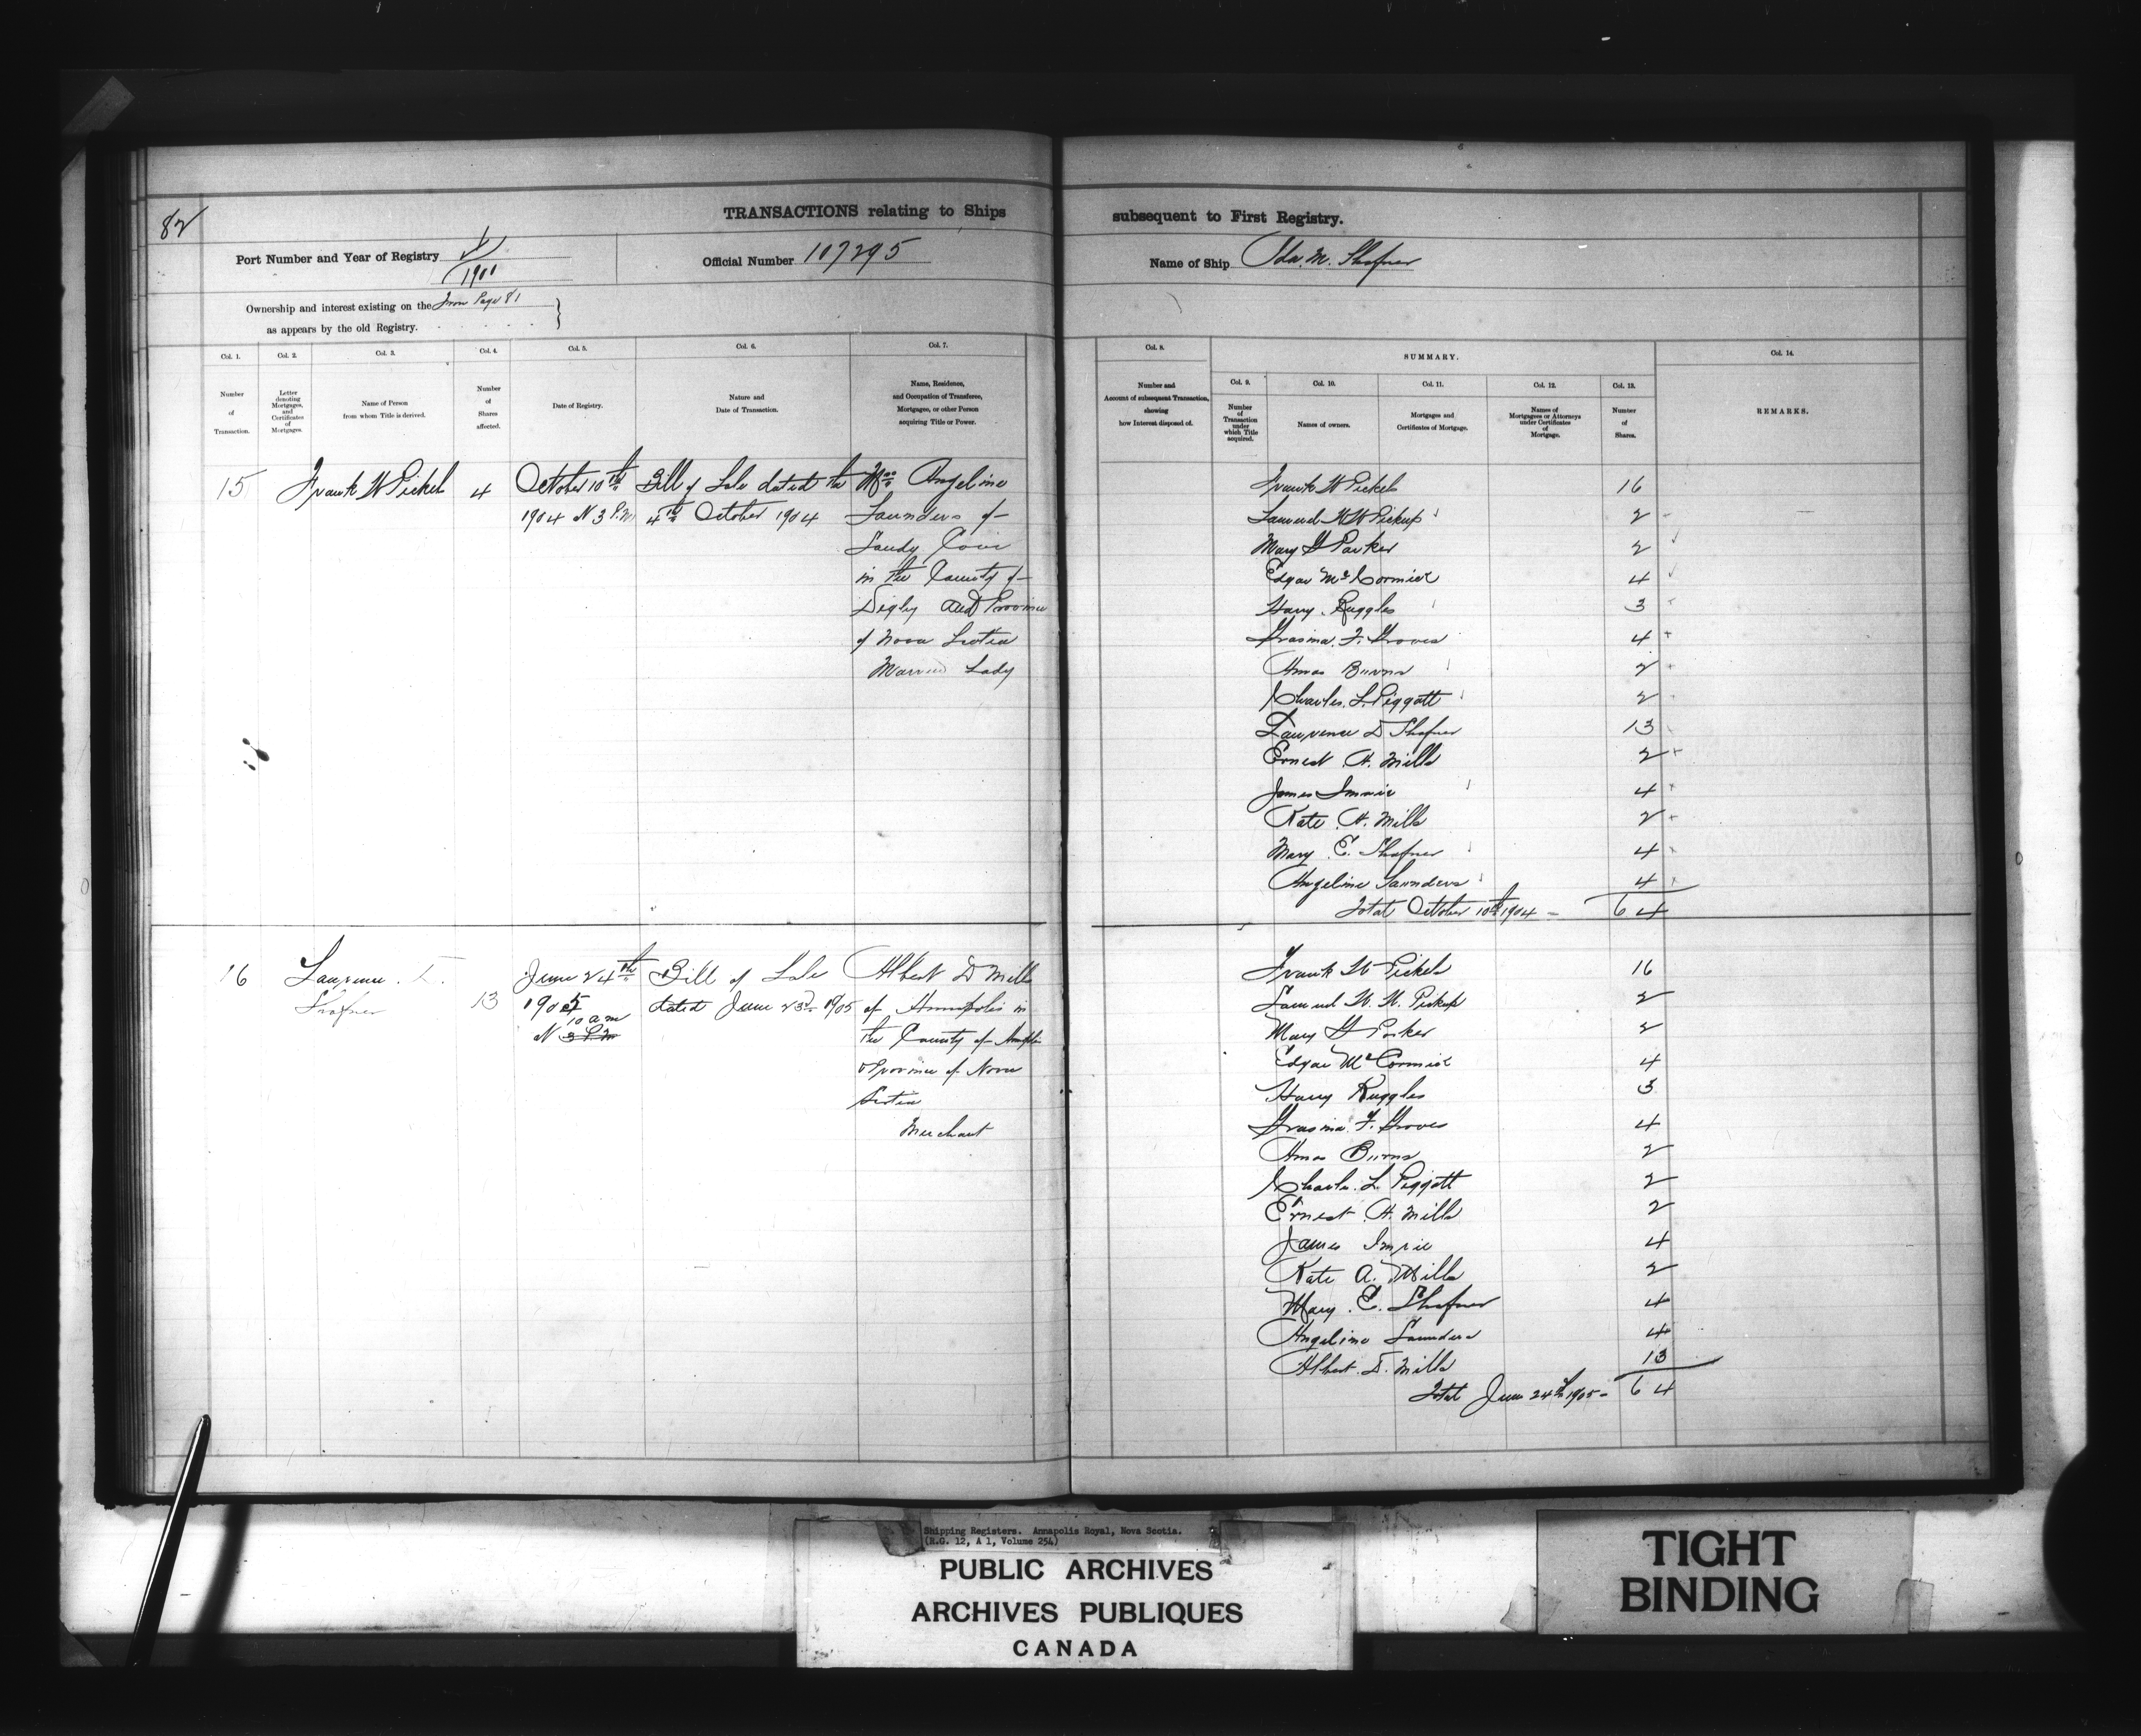 82
TRANSACTIONS relating to Ships subsequent to First Registry.
Port Number and Year of Registry V/1901
Official Number 107295
Name of Ship Ida M. Shafner
Ownership and interest existing on the from Page 81
as appears by the old Registry.
Col. 1. Number of Transaction.
Col. 2. Letter denoting Mortgages, and Certificates of Mortgages.
Col. 3. Name of Person from whom Title is derived.
Col. 4. Number of Shares affected.
Col. 5. Date of Registry.
Col. 6. Nature and Date of Transaction.
Col. 7. Name, Residence, and Occupation of Transferee, Mortgagee, or other Person acquiring Title or Power.
Col. 8. Number and Account of subsequent Transaction, showing how Interest disposed of.
SUMMARY.
Col. 9. Number of Transaction under which Title acquired.
Col. 10. Names of owners.
Col. 11. Mortgages and Certificates of Mortgage.
Col. 12. Names of Mortgagees or Attorneys under Certificates of Mortgage.
Col. 13. Number of Shares.
Col. 14. REMARKS.
15 Frank W Pickels 4 October 10th Bill of Sale dated the Mrs Angeline
1904 N 3 P.M 4th October 1904 Saunders of
Sandy Cove
in the County of
Digby and Province
of Nova Scotia
Married Lady
Frank W Pickels 16
Samuel W W Pickup 2
Mary G Parker 2
Edgar McCormick 4
Harry Ruggles 3
Grasina F. Groves 4
Amos Burns 2
Charles L. Piggott 2
Lawrence D Shafner 13
Ernest A. Mills 2
James Imrie 4
Kate A. Mills 2
Mary E. Shafner 4
Angeline Saunders 4
Total October 10th 1904 - 64
16 Lawrence D. 13 June 24th Bill of Sale Albert D Mills
Shafner 1905 dated June 23d 1905 of Annapolis in
10 am the County of Annapolis
N 3 P.M & Province of Nova
Scotia
Merchant
Frank W Pickels 16
Samuel W. W. Pickup 2
Mary G Parker 2
Edgar McCormick 4
Harry Ruggles 3
Grasina F. Groves 4
Amos Burns 2
Charles L. Piggott 2
Ernest A. Mills 2
James Imrie 4
Kate A. Mills 2
Mary E. Shafner 4
Angeline Saunders 4
Albert D. Mills 13
Total June 24th 1905 - 64
Shipping Registers. Annapolis Royal, Nova Scotia.
(R.G. 12, A 1, Volume 254)
PUBLIC ARCHIVES
ARCHIVES PUBLIQUES
CANADA
TIGHT
BINDING